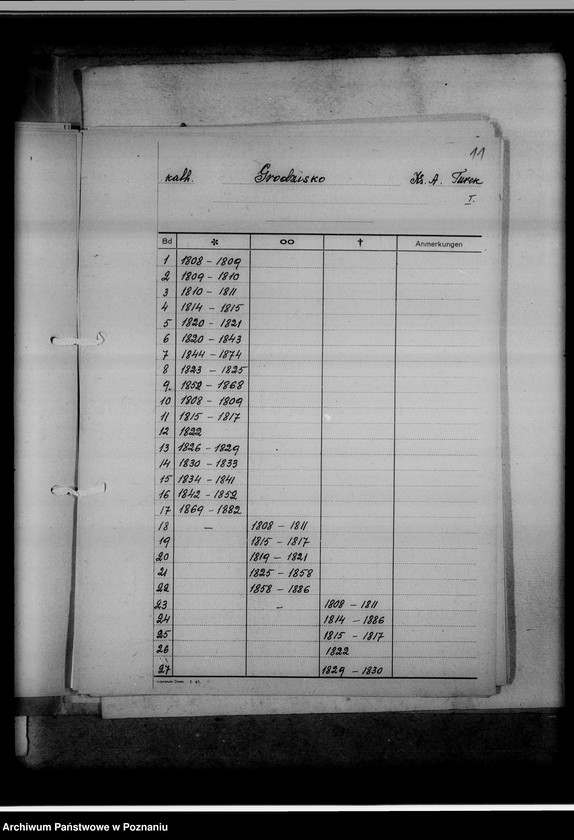 11
kath. Grodzisko Ks. A. Turek
I.
Bd * oo † Anmerkungen
1 1808 – 1809
2 1809 – 1810
3 1810 – 1811
4 1814 – 1815
5 1820 – 1821
6 1820 – 1843
7 1844 – 1874
8 1823 – 1825
9. 1852 – 1868
10 1808 – 1809
11 1815 – 1817
12 1822
13 1826 – 1829
14 1830 – 1833
15 1834 – 1841
16 1842 – 1852
17 1869 – 1882
18 – 1808 – 1811
19 1815 – 1817
20 1819 – 1821
21 1825 – 1858
22 1858 – 1886
23 – 1808 – 1811
24 1814 – 1886
25 1815 – 1817
26 1822
27 1829 – 1830
Archiwum Państwowe w Poznaniu